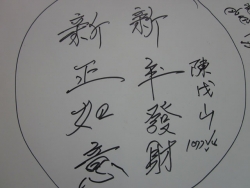 陳戊山
新年發財
新正如意